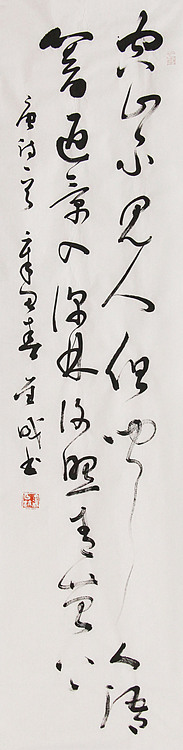 空山不見人但聞人語
響返景入深林復照青苔上
唐詩一首 春 書